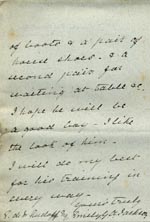 of boots & a pair of
house shoes. & a
second pair for
waiting at table &c.
I hope he will be
a good boy. I like
the look of him.
I will do my best
for his training in
every way.
Yours truly
Emily G. Jackson